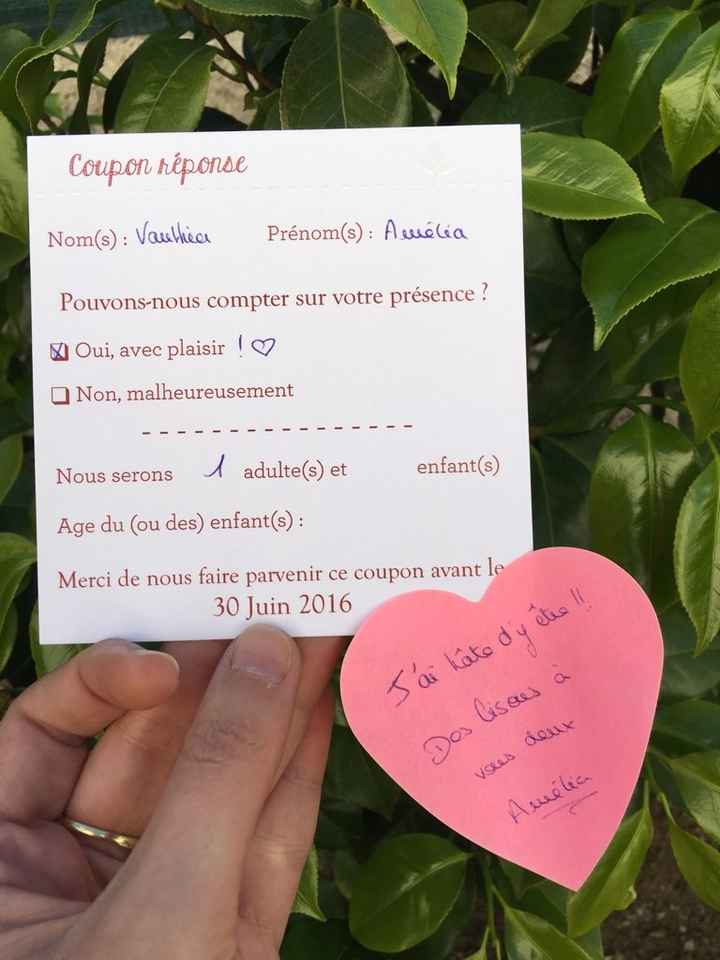 Coupon réponse
Nom(s) : Vauthier Prénom(s) : Amélia
Pouvons-nous compter sur votre présence ?
Oui, avec plaisir ! ♡
Non, malheureusement
Nous serons 1 adulte(s) et enfant(s)
Age du (ou des) enfant(s) :
Merci de nous faire parvenir ce coupon avant le
30 Juin 2016
J'ai hâte d'y être !!
Des bisous à
vous deux
Amélia